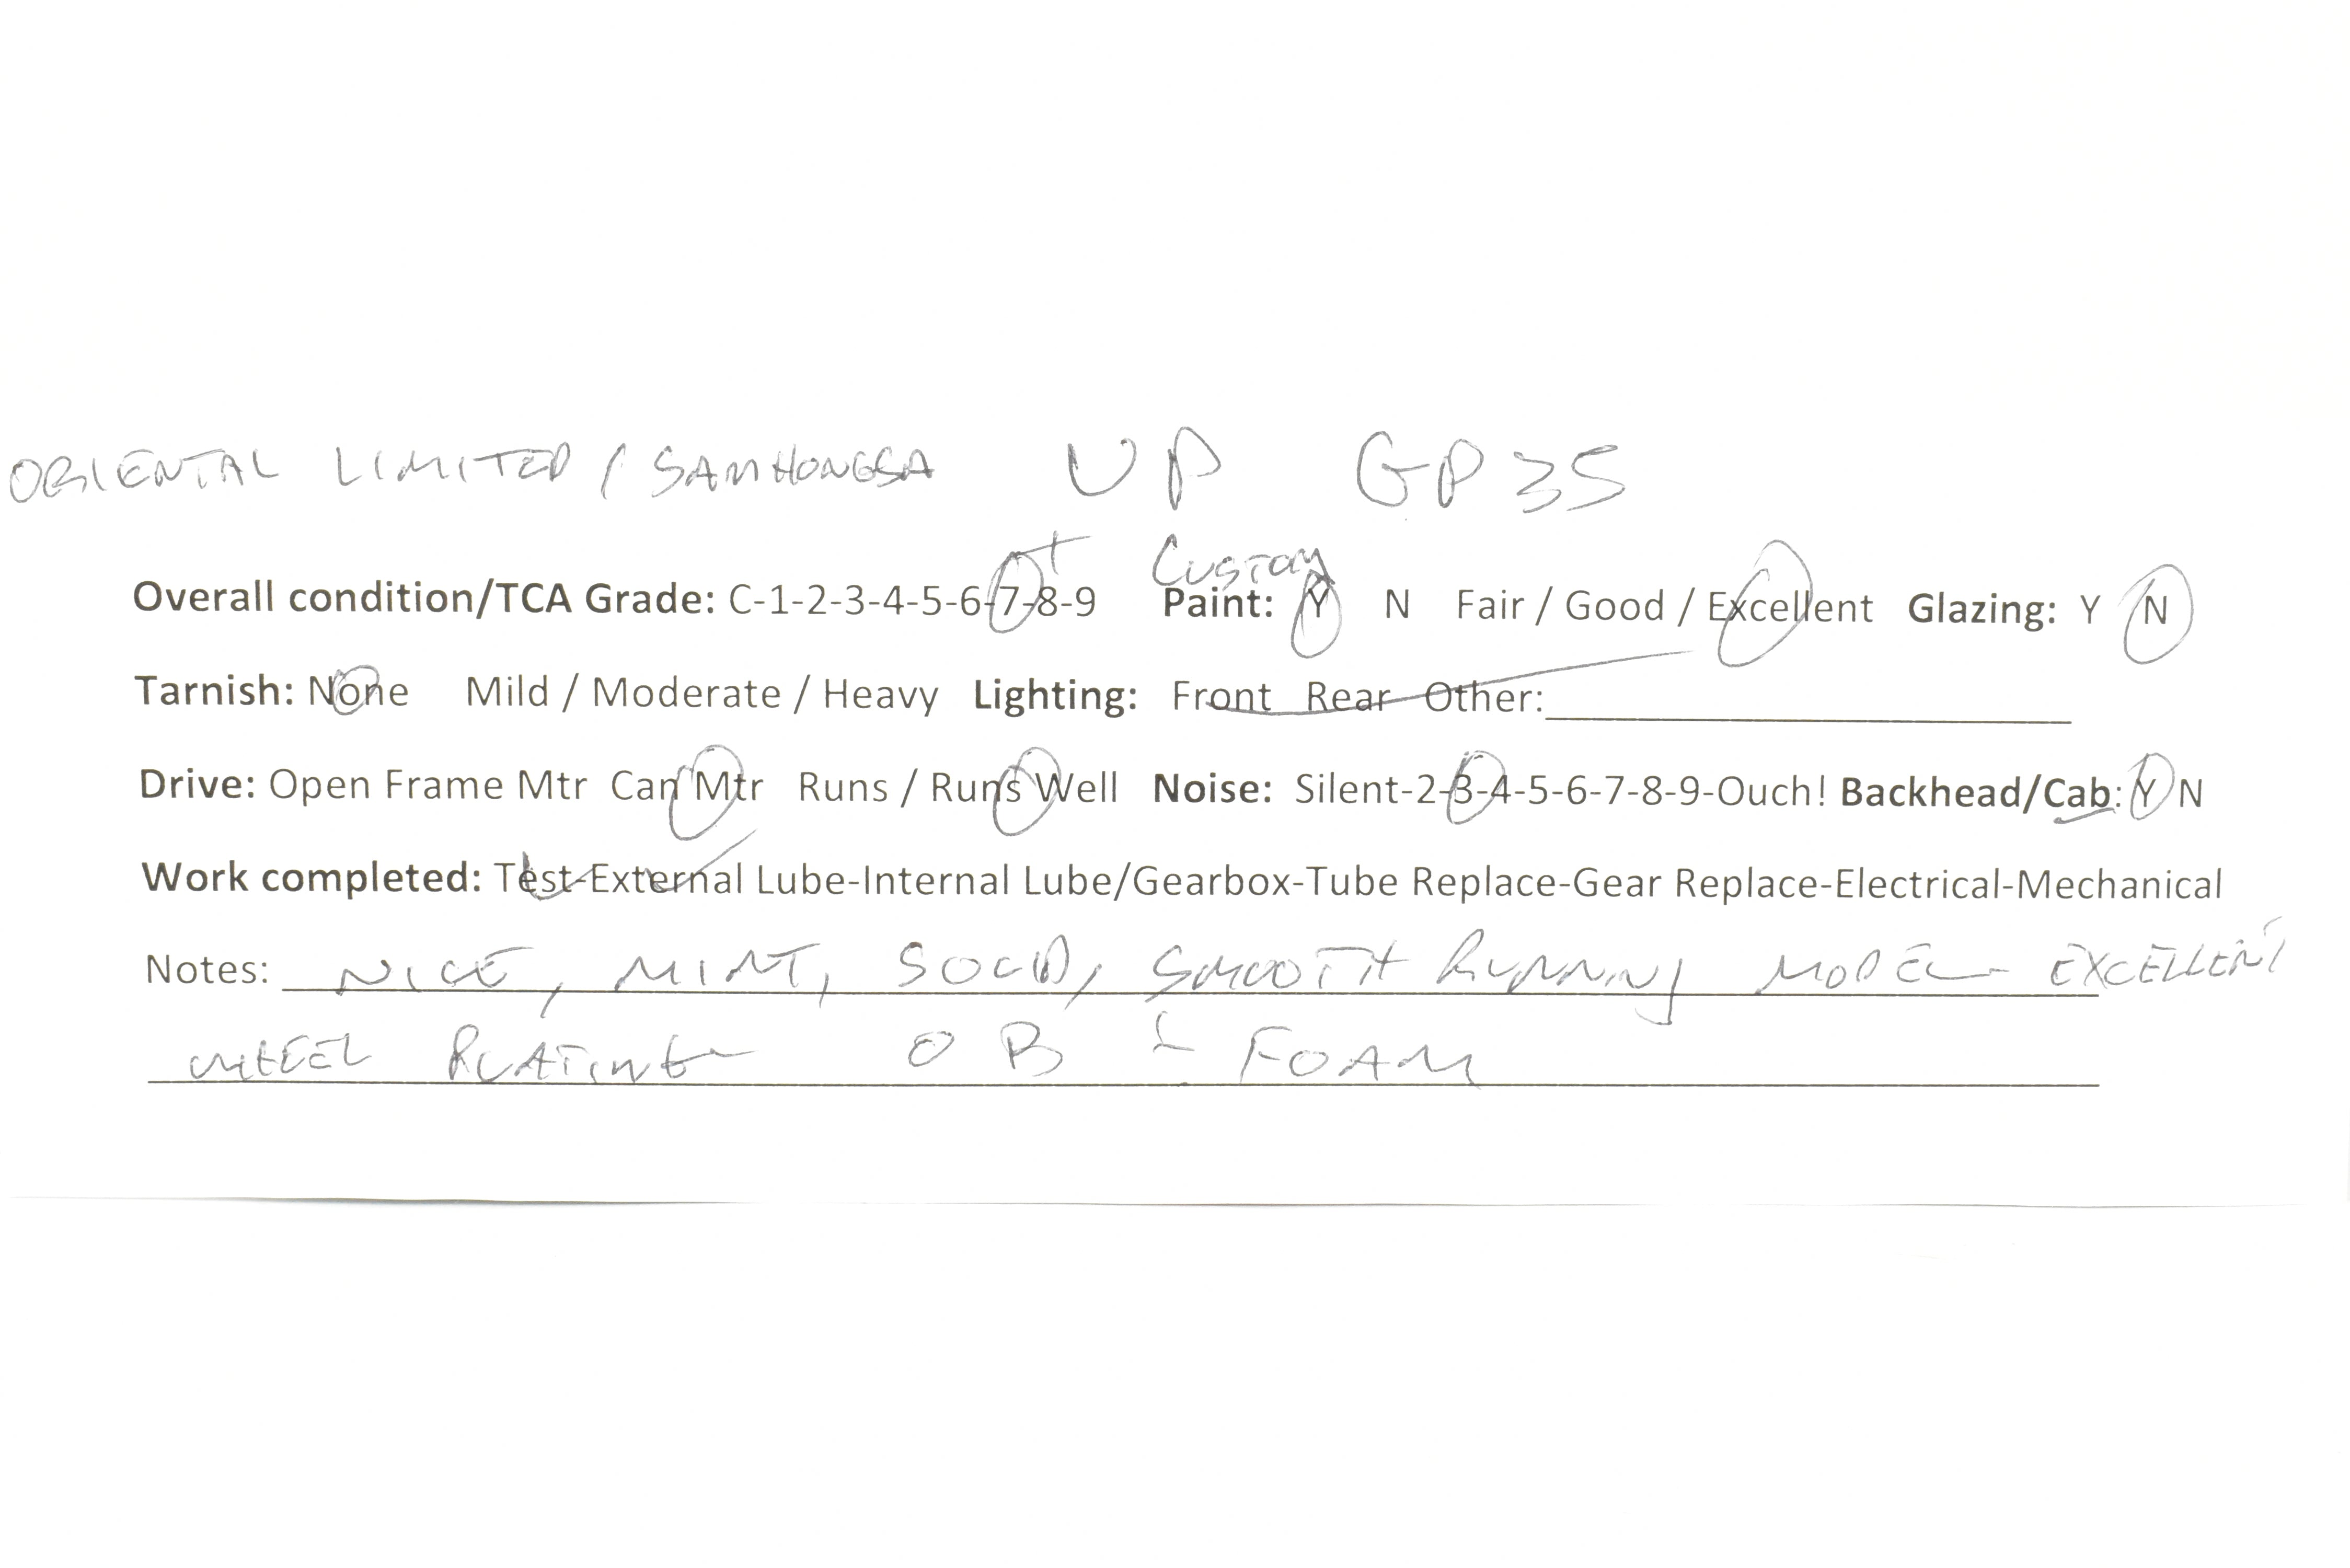 ORIENTAL LIMITED / SAMHONGSA UP GP35
Custom
Overall condition/TCA Grade: C-1-2-3-4-5-6-7-8-9 + Paint: Y N Fair / Good / Excellent Glazing: Y N
Tarnish: None Mild / Moderate / Heavy Lighting: Front Rear Other:
Drive: Open Frame Mtr Can Mtr Runs / Runs Well Noise: Silent-2-3-4-5-6-7-8-9-Ouch! Backhead/Cab: Y N
Work completed: Test-External Lube-Internal Lube/Gearbox-Tube Replace-Gear Replace-Electrical-Mechanical
Notes: NICE, MINT, SOLID, SMOOTH RUNNING MODEL EXCELLENT
WHEEL PLATING OB & FOAM